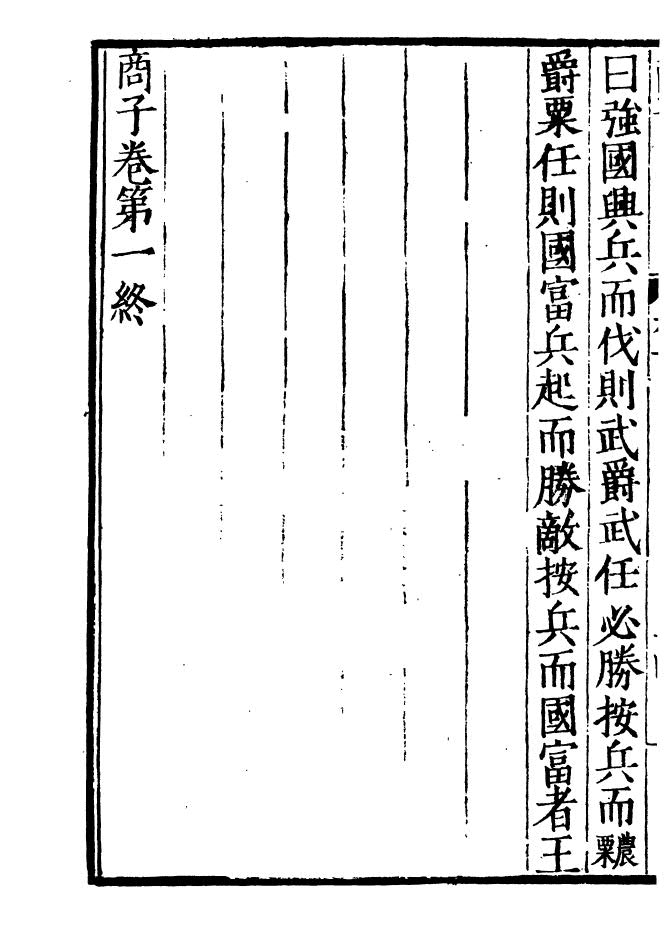 曰強國興兵而伐則武爵武任必勝按兵而農粟
爵粟任則國富兵起而勝敵按兵而國富者王
商子卷第一終